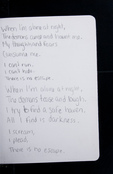 When I'm alone at night,
The demons come and haunt me.
My thoughts and fears
Consume me.
I can't run.
I can't hide.
There is no escape.
When I'm alone at night,
The demons tear and laugh.
I try to find a safe haven,
All I find is darkness.
I scream,
I plead,
There is no escape.